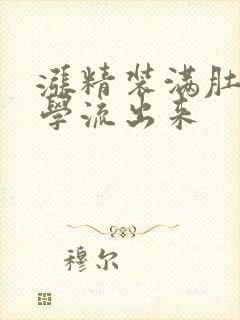 漲精装满肚
學流出来
穆尔